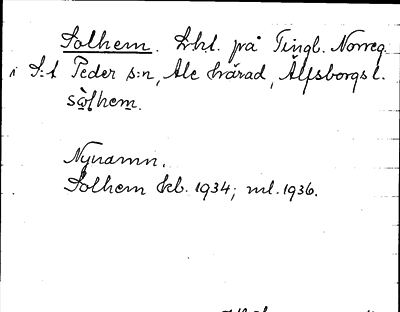 Solhem. Lht. på Tingl. Norreg.
i S:t Peder s:n, Ale härad, Älfsborgs l.
sòlhem.
Nynamn.
Solhem kb. 1934; ml. 1936.